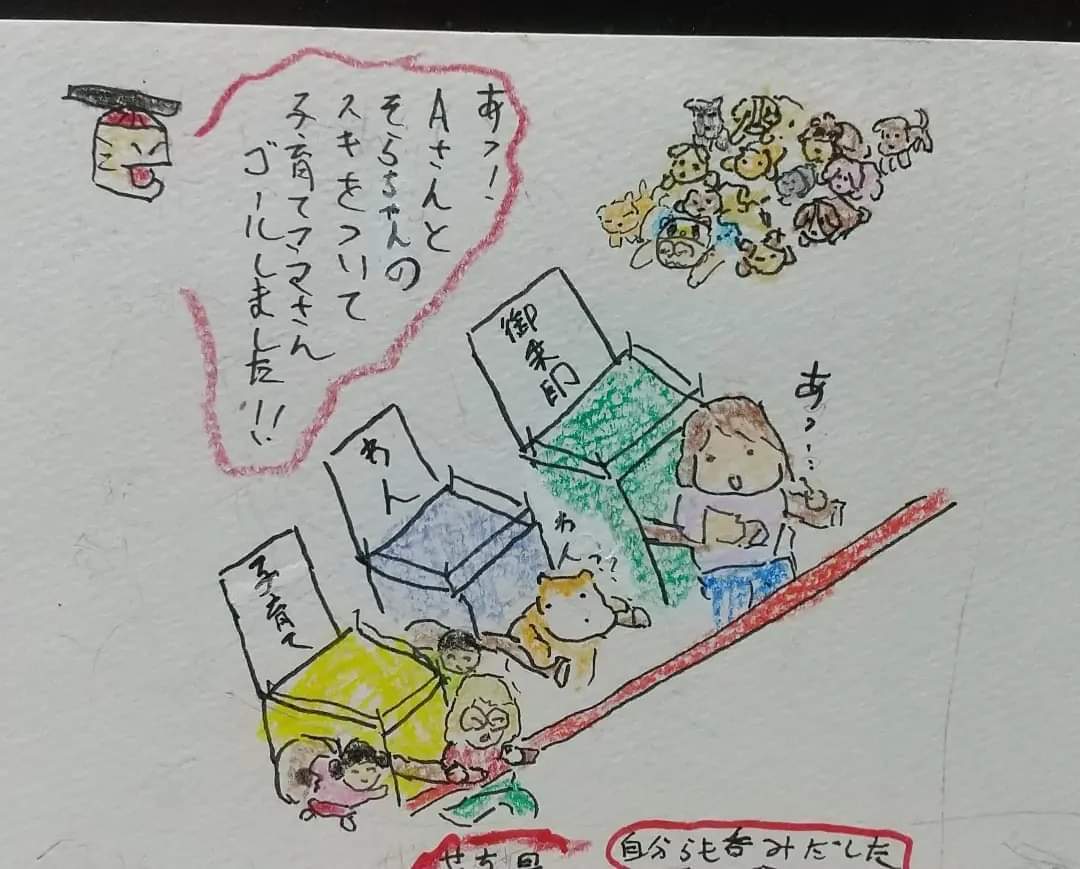 あっ!
Aさんと
そらちゃんの
スキをついて
子育てママさん
ゴールしました!!
御朱印
あっ…
わん
わん??
子育て
自分らも呑みだした